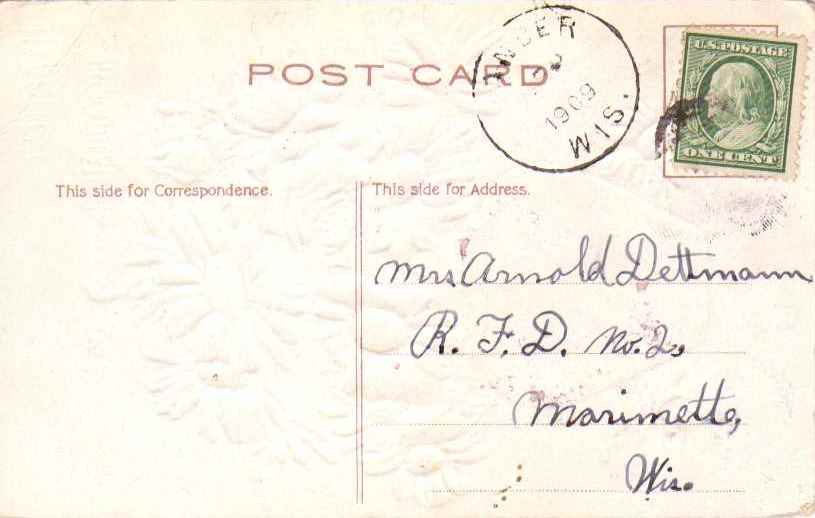 POST CARD
1909
WIS.
U.S. POSTAGE
ONE CENT
This side for Correspondence.
This side for Address.
Mrs Arnold Dettmann
R. F. D. No. 2,
Marinette,
Wis.